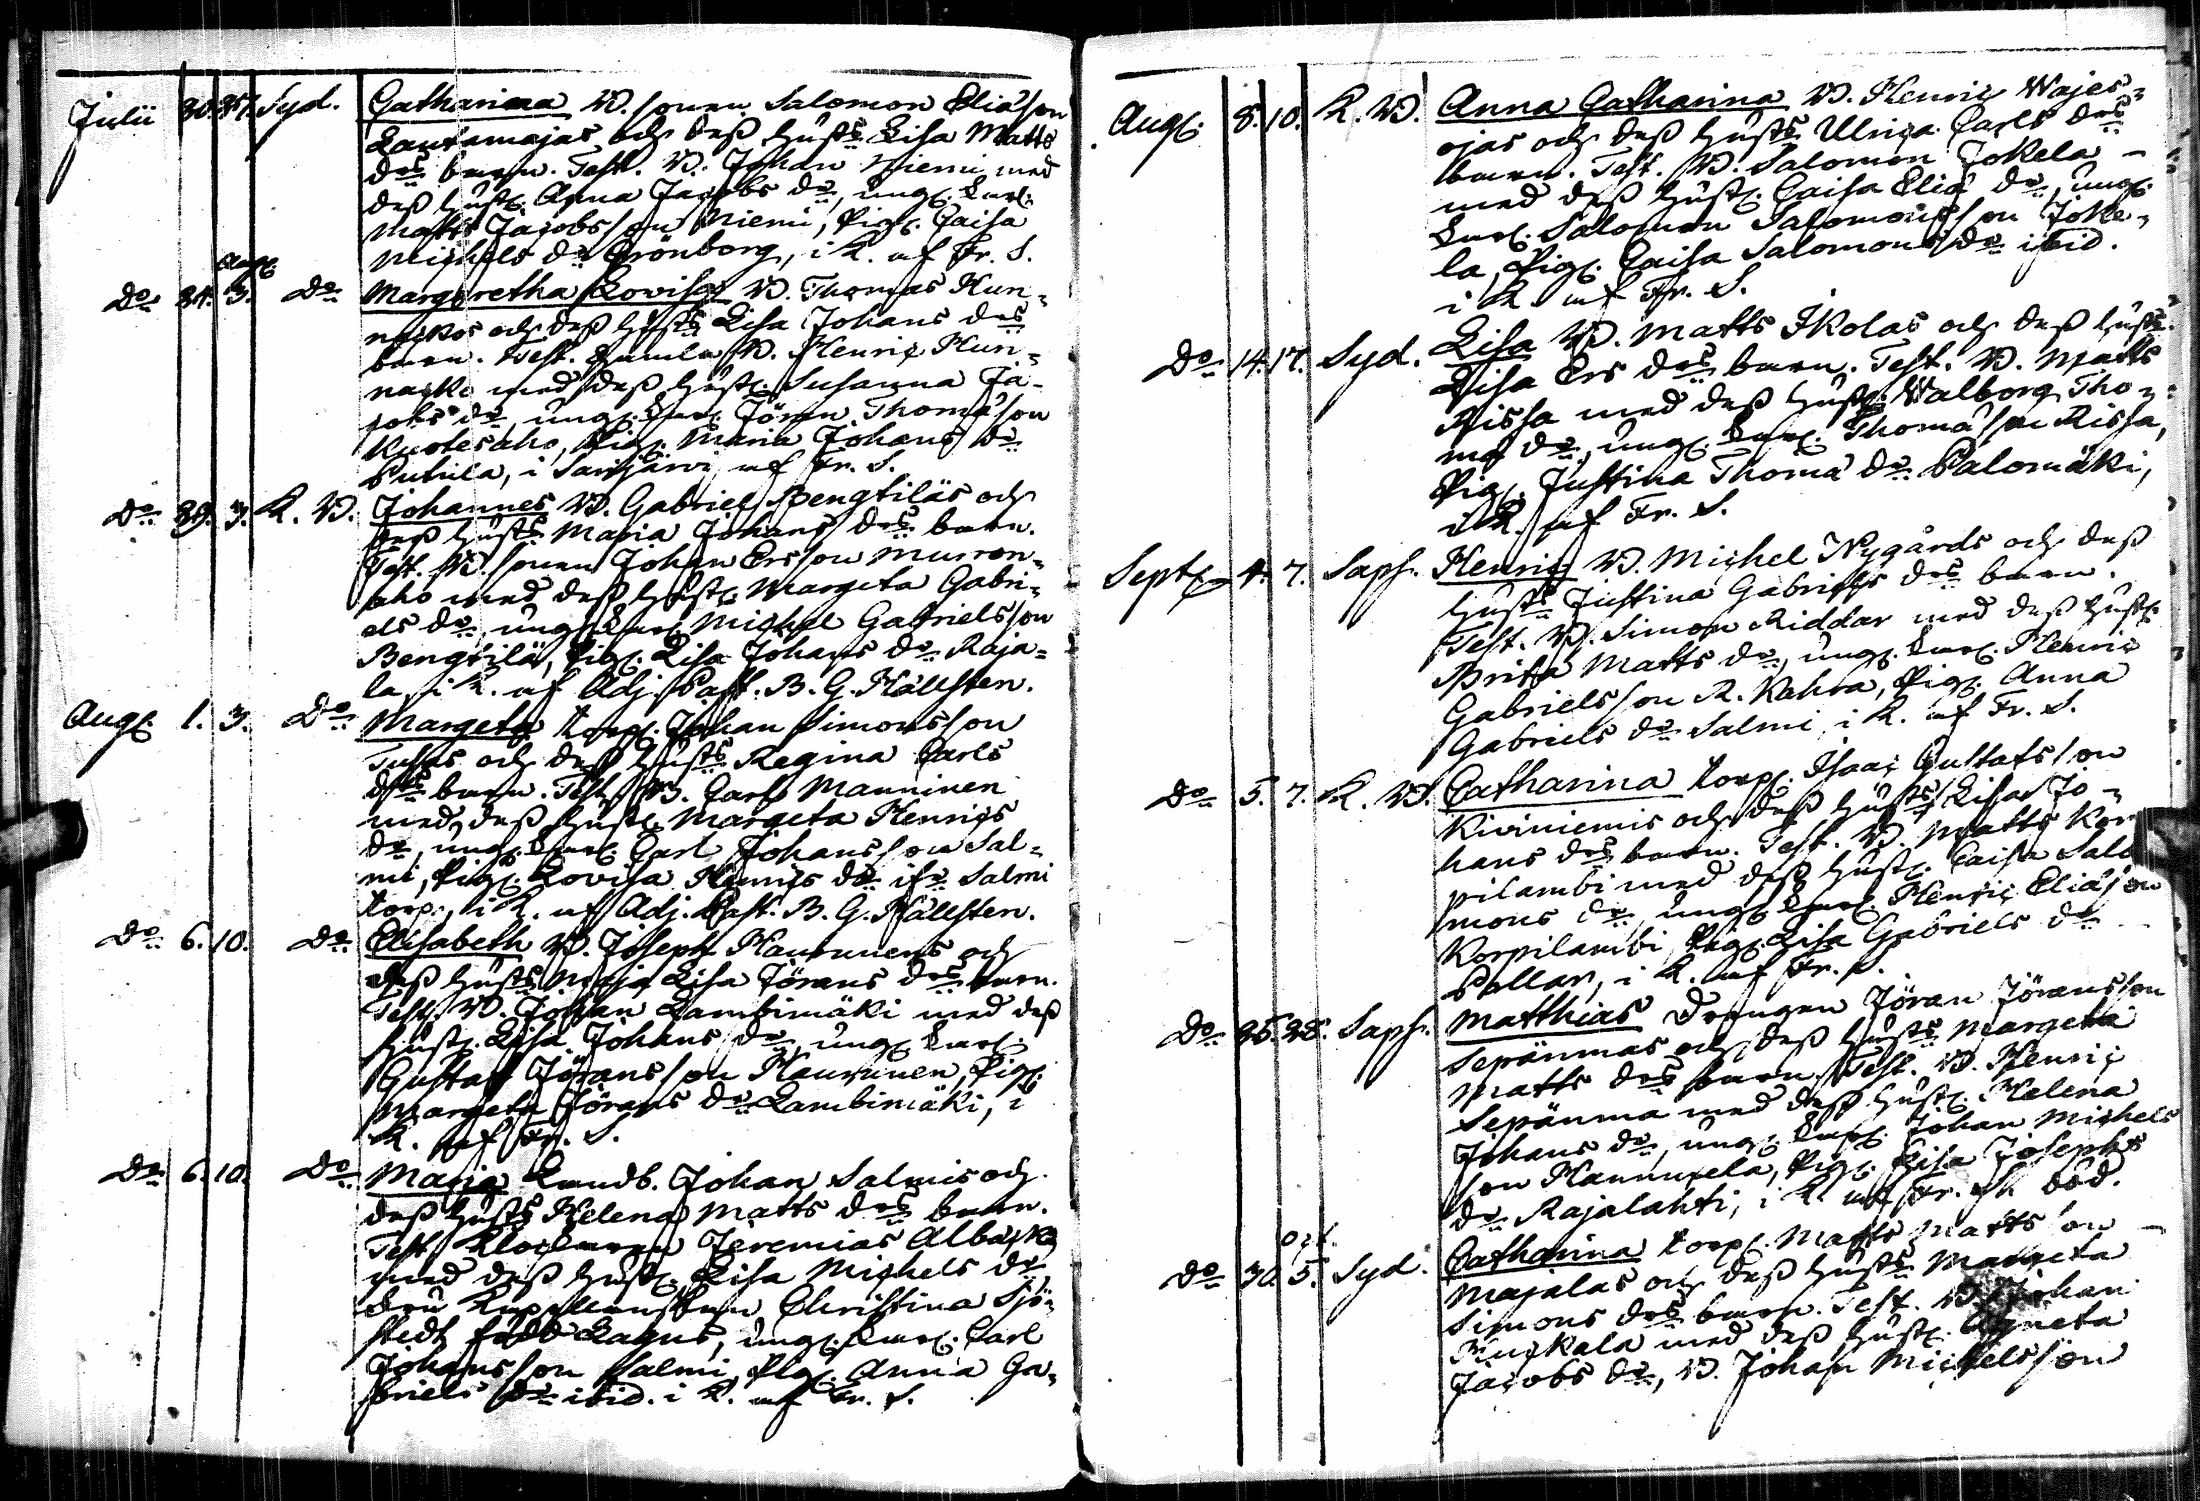 Julii 30. 31. Syd. Catharina B. sonen Salomon Eliäson
Lautamajas och deß hust:s Lisa Matts
d:rs barn. Test. B. Johan Niemi med
deß hust. Anna Jacobs d:r, ung. karl.
Matts Jacobsson Niemi, Pig. Caisa
Michels d:r Grönborg, i K. af Fr. S.
Aug.
D:o 3. D:o Margaretha Lovisa B. Thomas Hun-
nackos och deß hust:s Lisa Johans d:rs
barn. Test. Gamla B. Henric Hun-
nacko med deß hust. Susanna Ja-
cobs d:r, ung. karl. Jöran Thomäson
Kuotesaho, Pig. Maria Johans d:r
Puhila, i Saarijärvi af Fr. S.
D:o 29. 3. K. B. Johannes B. Gabriel Bengtiläs och
deß hust:s Maria Johans d:rs barn.
Test. B. sonen Johan Ersson Murron-
aho med deß hust. Margeta Gabri-
els d:r, ung. karl. Michel Gabrielsson
Bengtilä, Pig. Lisa Johans d:r Raja-
la, i K. af Adj. Past. B. G. Hällsten.
Aug. 1. 3. D:o Margeta torp. Johan Simonsson
och deß hust:s Regina Carls
d:rs barn. Test. B. Carl Manninen
med deß hust. Margeta Henrics
d:r, ung. karl. Carl Johansson Sal-
mi, Pig. Lovisa Henrics d:r Salmi
torp., i K. af Adj. Past. B. G. Hällsten.
D:o 6. 10. D:o Elisabeth B. Joseph Haurunens och
deß hust:s Maja Lisa Jörans d:rs barn.
Test. B. Johan Lambimäki med deß
hust. Lisa Johans d:r, ung. karl.
Gustaf Jöransson Haurunen, Pig.
Margeta Jörans d:r Lambimäki, i
K. af Fr. S.
D:o 6. 10. D:o Maria Landb. Johan Salmis och
deß hust:s Helena Matts d:rs barn.
Test. Klockaren Jeremias Alback
med deß hust. Lisa Michels d:r
Christina Sjö-
stedt född Lagus, ung. karl. Carl
Johansson Salmi, Pig. Anna Ga-
briels d:r ibid. i K. af Fr. S.
Aug. 8. 10. K. B. Anna Catharina B. Henric Wajes-
ojas och deß hust:s Ulrica Carls d:rs
barn. Test. B. Salomon Jokela -
med deß hust. Caisa Eliä d:r, ung.
karl. Salomon Salomonsson Joke-
la, Pig. Caisa Salomons d:r ibid.
i K. af Fr. S.
D:o 14. 17. Syd. Lisa B. Matts Ikolas och deß hust:s
Lisa Ers d:rs barn. Test. B. Matts
Rissa med deß hust. Walborg Tho-
mä d:r, ung. karl. Thomäson Rissa,
Pig. Justina Thomä d:r Palomäki,
i K. af Fr. S.
Sept. 4. 7. Saph. Henric B. Michel Nygårds och deß
hust:s Justina Gabriels d:rs barn.
Test. B. Simon Riddar med deß hust.
Brita Matts d:r, ung. karl. Henric
Gabrielsson R. Kahra, Pig. Anna
Gabriels d:r Salmi, i K. af Fr. S.
D:o 5. 7. K. B. Catharina torp. Isaac Gustafsson
Kiviniemis och deß hust:s Lisa Jo-
hans d:rs barn. Test. B. Matts Kor
pilambi med deß hust. Caisa Salo
mons d:r, ung. karl. Henric Eliäson
Korpilambi, Pig. Lisa Gabriels d:r
Pallar, i K. af Fr. S.
D:o 25. 28. Saph. Matthias Drengen Jöran Jöransson
Sepänmas och deß hust:s Margeta
Matts d:rs barn. Test. B. Henric
Sepänma med deß hust. Helena
Johans d:r, ung. karl. Johan Michels
son Hannuxela, Pig. Lisa Josephs
d:r Rajalahti, i K. af Fr. S. död.
Oct.
D:o 30. 5. Syd. Catharina torp. Matts Mattsson -
Majalas och deß hust:s Margeta
Simons d:rs barn. Test. B. Johan
med deß hust. Agneta
Jacobs d:r, B. Johan Michelsson